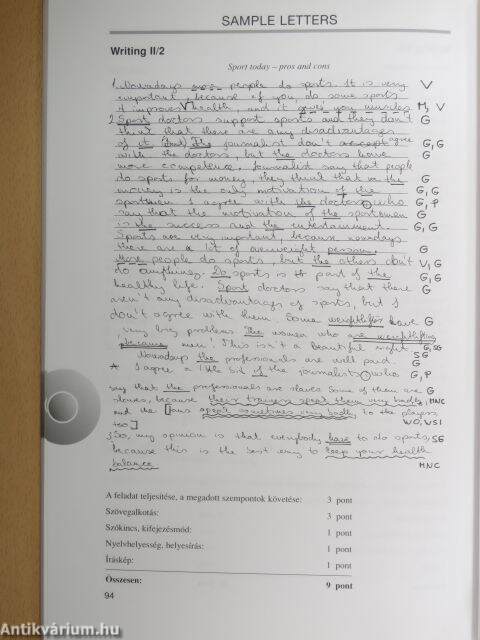 SAMPLE LETTERS
Writing II/2
Sport today – pros and cons
1. Nowadays more people do sports. It is very V
important, because if you do some sports
it improves health, and it gives you muscles M, V
2. Sport doctors support sports and they don't G
think that there are any disadvantages
of it. The journalist don't accept agree G, G
with the doctors, but the doctors have G
more competence. Journalist say that people
do sports for money, they think that in the G
money is the only motivation of the G, G
sportmen I agree with the doctors, who G, P
say that the motivation of the sportsmen G
is the success and the entertainment. G, G
Sports are very important, because nowadays
there are a lot of overweight persons. G
More people do sports, but the others don't V, G
do anything. Do sports is part of the G, G
healthy life. Sport doctors say that there G
aren't any disadvantages of sports, but I
don't agree with them. Some weightlifters have G
very big problems The women who are weightlifting
"became men". This isn't a beautiful G, SG
Nowadays the professionals are well paid SG
G
I agree a little bit of the journalists, who G, P
say that the professionals are slaves some of them are G
slaves, because their trainers speak them very badly, MNC
and the fans speak sometimes very badly to the players
too WO, WSI
3 So, my opinion is that everybody have to do sports, SG
because this is the best way to keep your health
balance MNC
A feladat teljesítése, a megadott szempontok követése: 3 pont
Szövegalkotás: 3 pont
Szókincs, kifejezésmód: 1 pont
Nyelvhelyesség, helyesírás: 1 pont
Íráskép: 1 pont
Összesen: 9 pont
94
Antikvárium.hu